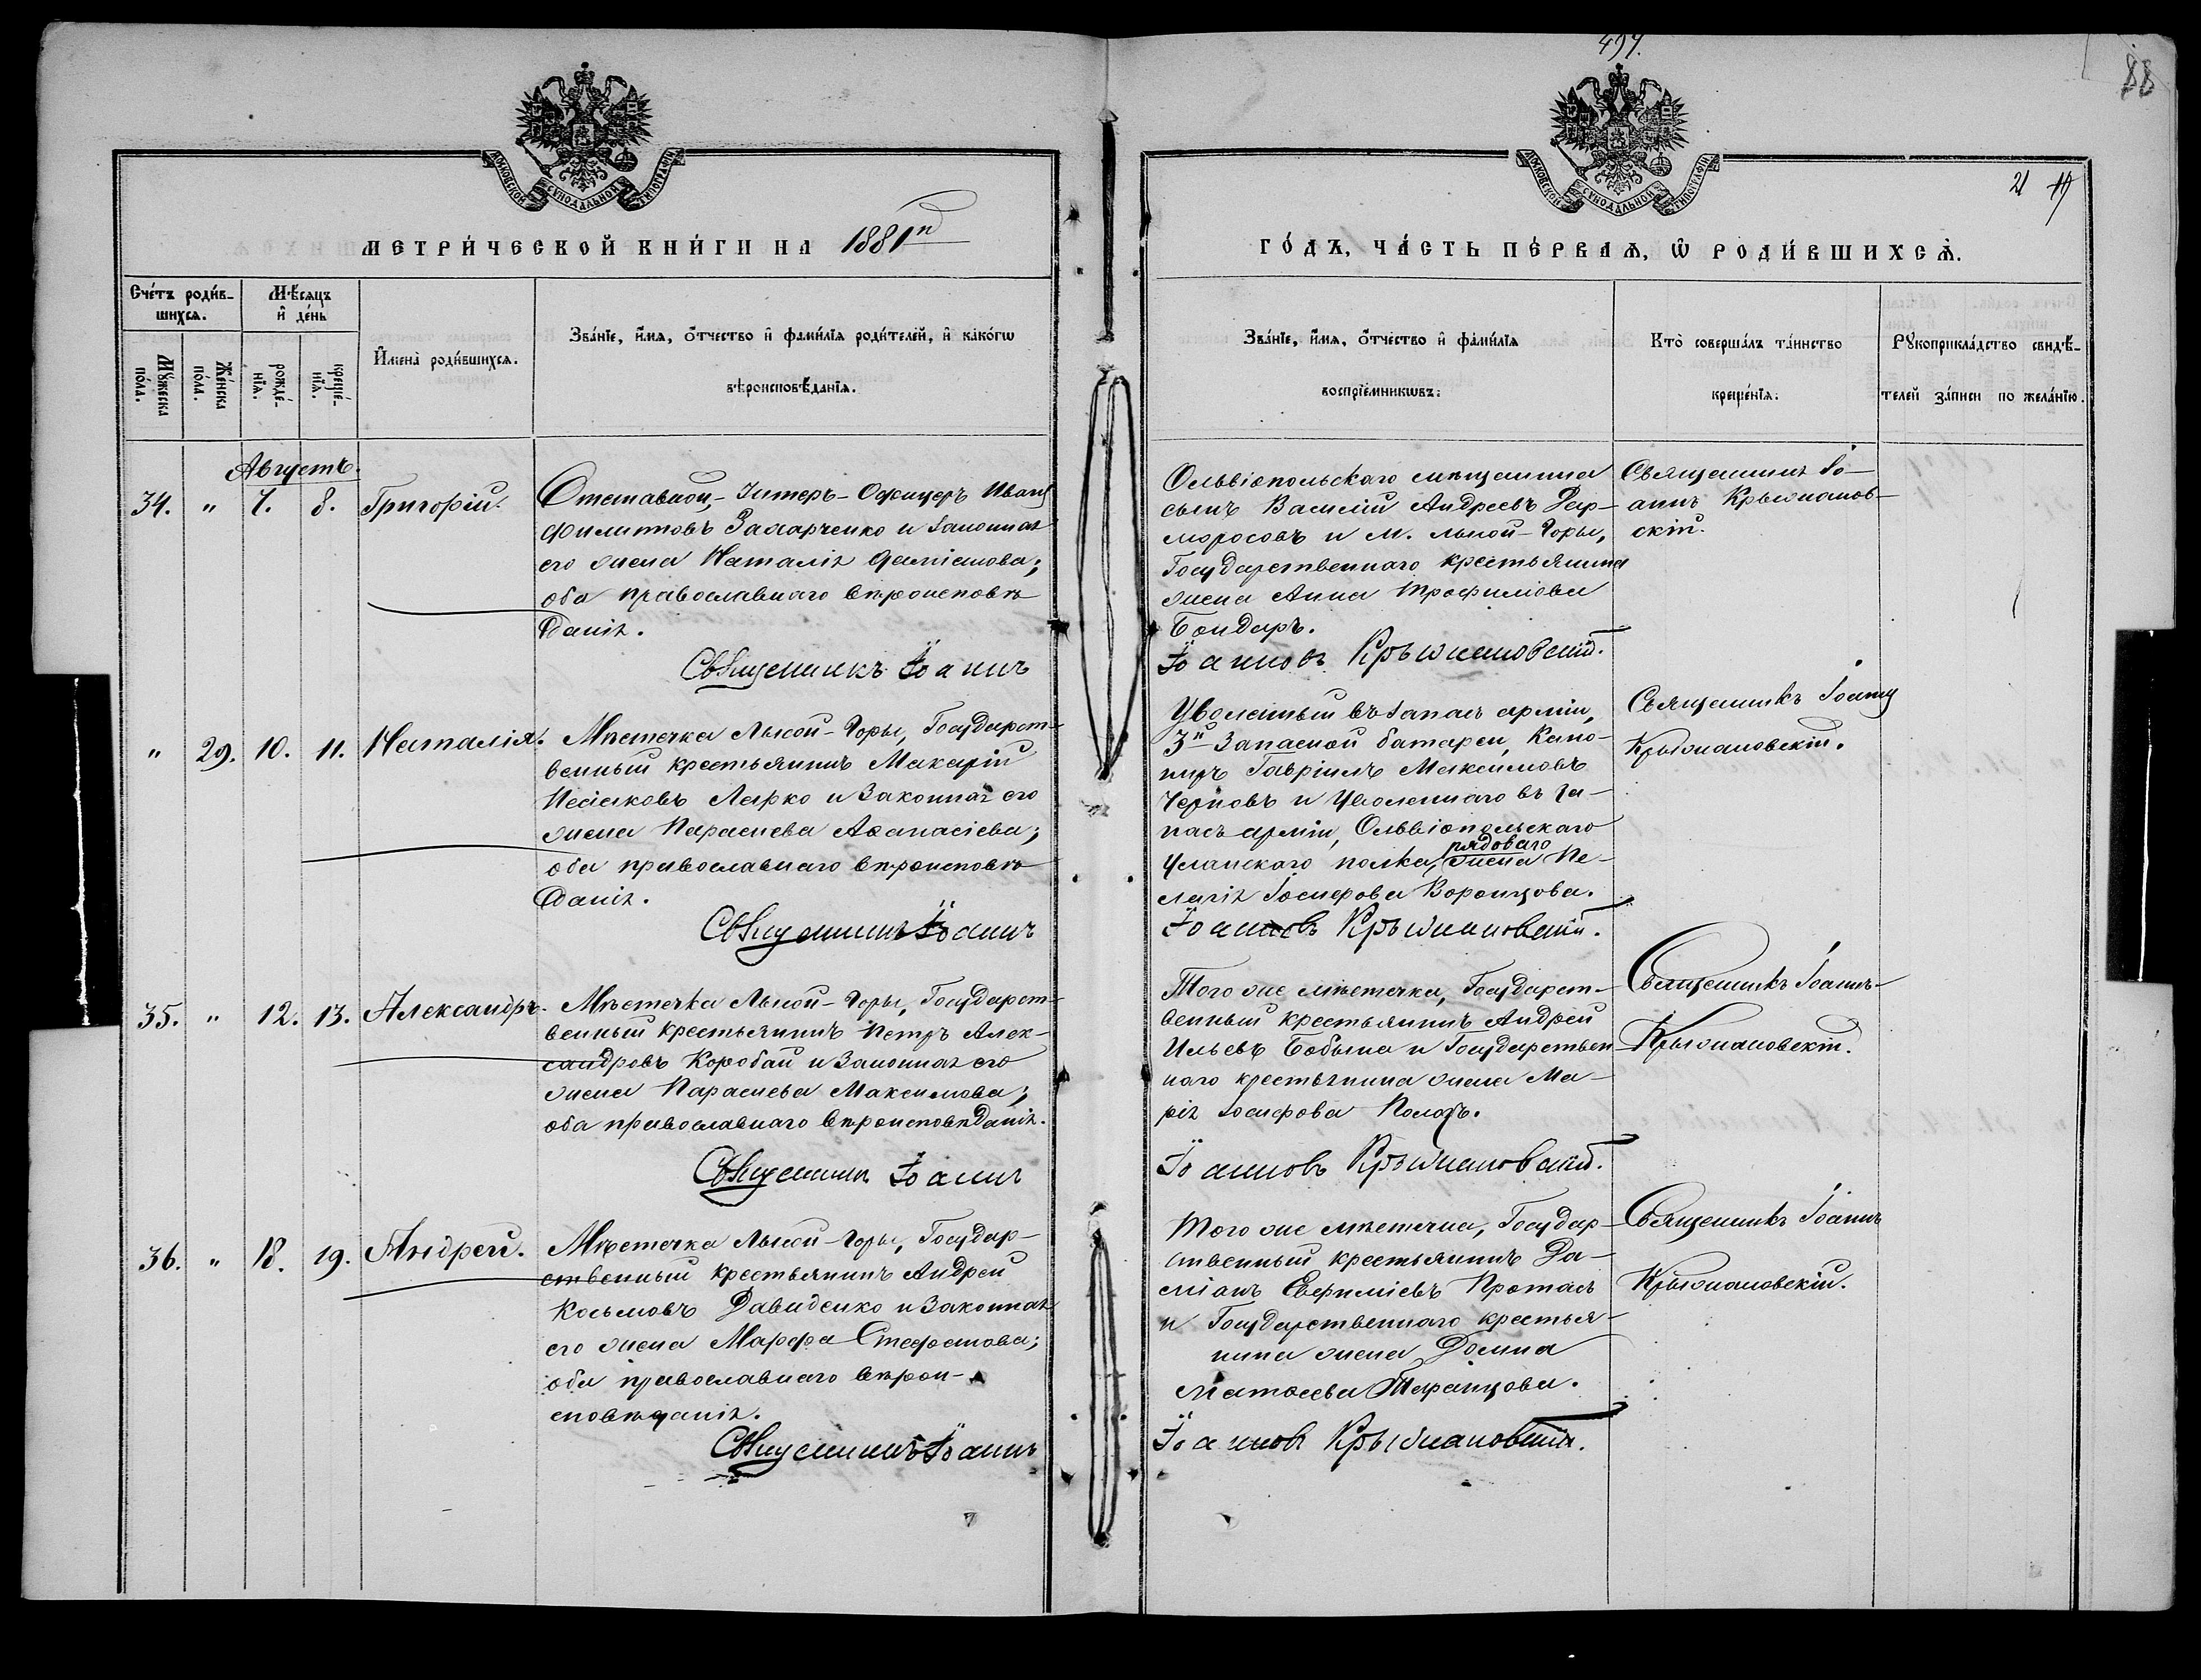 497.
88
21 19
МОСКОВСКОЙ СѴНОДАЛЬНОЙ ТИПОГРАФІИ
МОСКОВСКОЙ СѴНОДАЛЬНОЙ ТИПОГРАФІИ
МЕТРИ́ЧЕСКОЙ КНИ́ГИ НА 1881й
ГО́ДЪ, ЧА́СТЬ ПЕ́РВАѦ, Ѡ҆ РОДИ́ВШИХСѦ.
Сче́тъ роди́в-
шихсѧ.
Мꙋ́жеска по́ла.
Же́нска по́ла.
Мѣ́сѧцъ
и҆ де́нь
рожде́-
нїѧ.
креще́-
нїѧ.
И҆мена̀ роди́вшихсѧ.
Зва́нїе, и҆́мѧ, ѻ҆́тчество и҆ фами́лїѧ роди́телей, и҆ како́гѡ
вѣроисповѣ́данїѧ.
Зва́нїе, и҆́мѧ, ѻ҆́тчество и҆ фами́лїѧ
воспрїе́мникѡвъ.
Кто̀ соверша́лъ та́инство
креще́нїѧ.
Рꙋкоприкла́дство свидѣ́-
телей за́писи по жела́нїю.
Августъ.
34. " 7. 8. Григорій.
Отставной, Унтеръ-Офицеръ Иванъ
Филипповъ Захарченко и законная
его жена Наталія Даміанова;
оба православнаго вѣроисповѣ
данія.
Священникъ Іоаннъ
Ольвіопольскаго мѣщанина
сынъ Василій Андреевъ Дер-
моросовъ и м. Лысой-Горы,
Государственнаго крестьянина
жена Анна Трофимова
Бондарь.
Іоанновъ Крыжановскій.
Священникъ Іо-
аннъ Крыжанов-
скій.
" 29. 10. 11. Наталія.
Мѣстечка Лысой-Горы, Государст-
венный крестьянинъ Макарій
Исааковъ Ларко и законная его
жена Параскева Аѳанасіева;
оба православнаго вѣроисповѣ
данія.
Священникъ Іоаннъ
Уволенный въ запасъ арміи,
3й Запасной батареи, Кано-
ниръ Гавріилъ Максимовъ
Черновъ и уволеннаго въ за-
пасъ арміи, Ольвіопольскаго
рядоваго
Уланскаго полка, жена Пе-
лагія Іосифова Воронцова.
Іоанновъ Крыжановскій.
Священникъ Іоаннъ
Крыжановскій.
35. " 12. 13. Александръ.
Мѣстечка Лысой-Горы, Государст-
венный крестьянинъ Петръ Алек-
сандровъ Коробай и законная его
жена Параскева Максимова;
оба православнаго вѣроисповѣданія.
Священникъ Іоаннъ
Того же мѣстечка, Государст-
венный крестьянинъ Андрей
Ильевъ Бобына и Государствен
наго крестьянина жена Ма-
рія Іосифова
Іоанновъ Крыжановскій.
Священникъ Іоаннъ
Крыжановскій.
36. " 18. 19. Андрей.
Мѣстечка Лысой-Горы, Государ-
ственный крестьянинъ Андрей
Косьмовъ Давиденко и законная
его жена Марфа Стефанова;
оба православнаго вѣрои-
сповѣданія.
Священникъ Іоаннъ
Того же мѣстечка, Государ-
ственный крестьянинъ Да-
міанъ Евфиміевъ Протасъ
и Государственнаго крестья-
нина жена Домна
Матѳеева Таранцова.
Іоанновъ Крыжановскій.
Священникъ Іоаннъ
Крыжановскій.